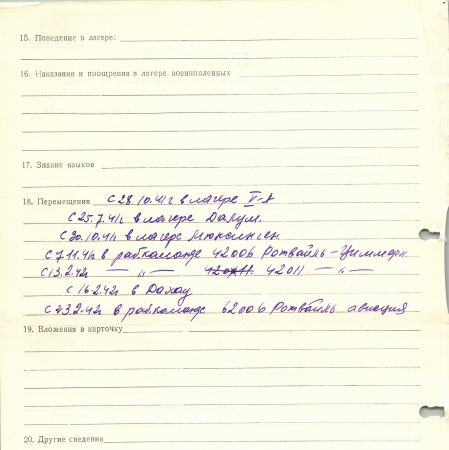 15. Поведение в лагере:
16. Наказания и поощрения в лагере военнопленных
17. Знание языков
18. Перемещения С 28.10.41г в лагере V-А
С 25.7.41г в лагере Далум.
С 30.10.41г в лагере
С 7.11.41г в раб.команде 42006 Ротвайль-
С 13.2.42г — „ — 42011 — „ —
С 16.2.42г в Дахау
С 23.2.42г в рабкоманде 62006 Ротвайль авиация
19. Вложения в карточку
20. Другие сведения